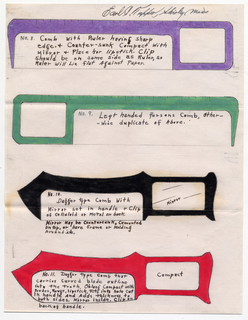 No. 8. Comb With Ruler having sharp
edge + Counter-sunk Compact With
Mirror + Place for lipstick. Clip
Should be on same side as Ruler, so
Ruler Will lie flat Against Paper.
No. 9.
Left handed persons Comb, Other-
-wise duplicate of Above.
No. 10.
Dagger Type Comb With
Mirror set in handle + Clip
of Celluloid or Metal on back
Mirror May be Countersunk, Cemented
on top, or have Frame or Holding
Mirror
No. 11. Dagger Type Comb that
carries Curved blade outline
into the teeth. Oblong Compact With
Powder, Rouge, lipstick,
in handle And Adds thickness to
both sides. Mirror inside. Clip is
back of handle.
Compact